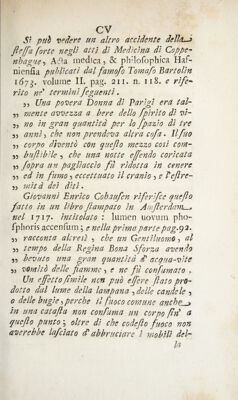 CV
Si può vedere un altro accidente della
stessa sorte negli atti di Medicina di Coppe-
nhague, Acta medica, & philosophica Haf-
niensia publicati dal famoso Tomaso Bartolin
1673. volume II. pag. 211. n. 118. e rife-
rito ne' termini seguenti.
„ Una povera Donna di Parigi era tal-
„ mente avvezza a bere dello spirito di vi-
„ no in gran quantità per lo spazio di tre
„ anni, che non prendeva altra cosa. Il suo
„ corpo diventò con questo mezzo così com-
„ bustibile, che una notte essendo coricata
„ sopra un pagliaccio fù ridotta in cenere
„ ed in fumo, eccettuato il cranio, e l'estre-
„ mità dei diti.
Giovanni Enrico Cohausen riferisce questo
fatto in un libro stampato in Amsterdam
nel 1717. intitolato: lumen novum pho-
sphoris accensum; e nella prima parte pag. 92.
„ racconta altresì, che un Gentiluomo, al
„ tempo della Regina Bona Sforza avendo
„ bevuto una gran quantità d'acqua-vite
„ vomitò delle fiamme, e ne fù consumato.
Un effetto simile non può essere stato pro-
dotto dal lume della lampana, delle candele,
o delle bugie, perche il fuoco comune anche
in una catasta non consuma un corpo sin' a
questo punto; oltre di che codesto fuoco non
averebbe lasciato d'abbruciare i mobili del-
la